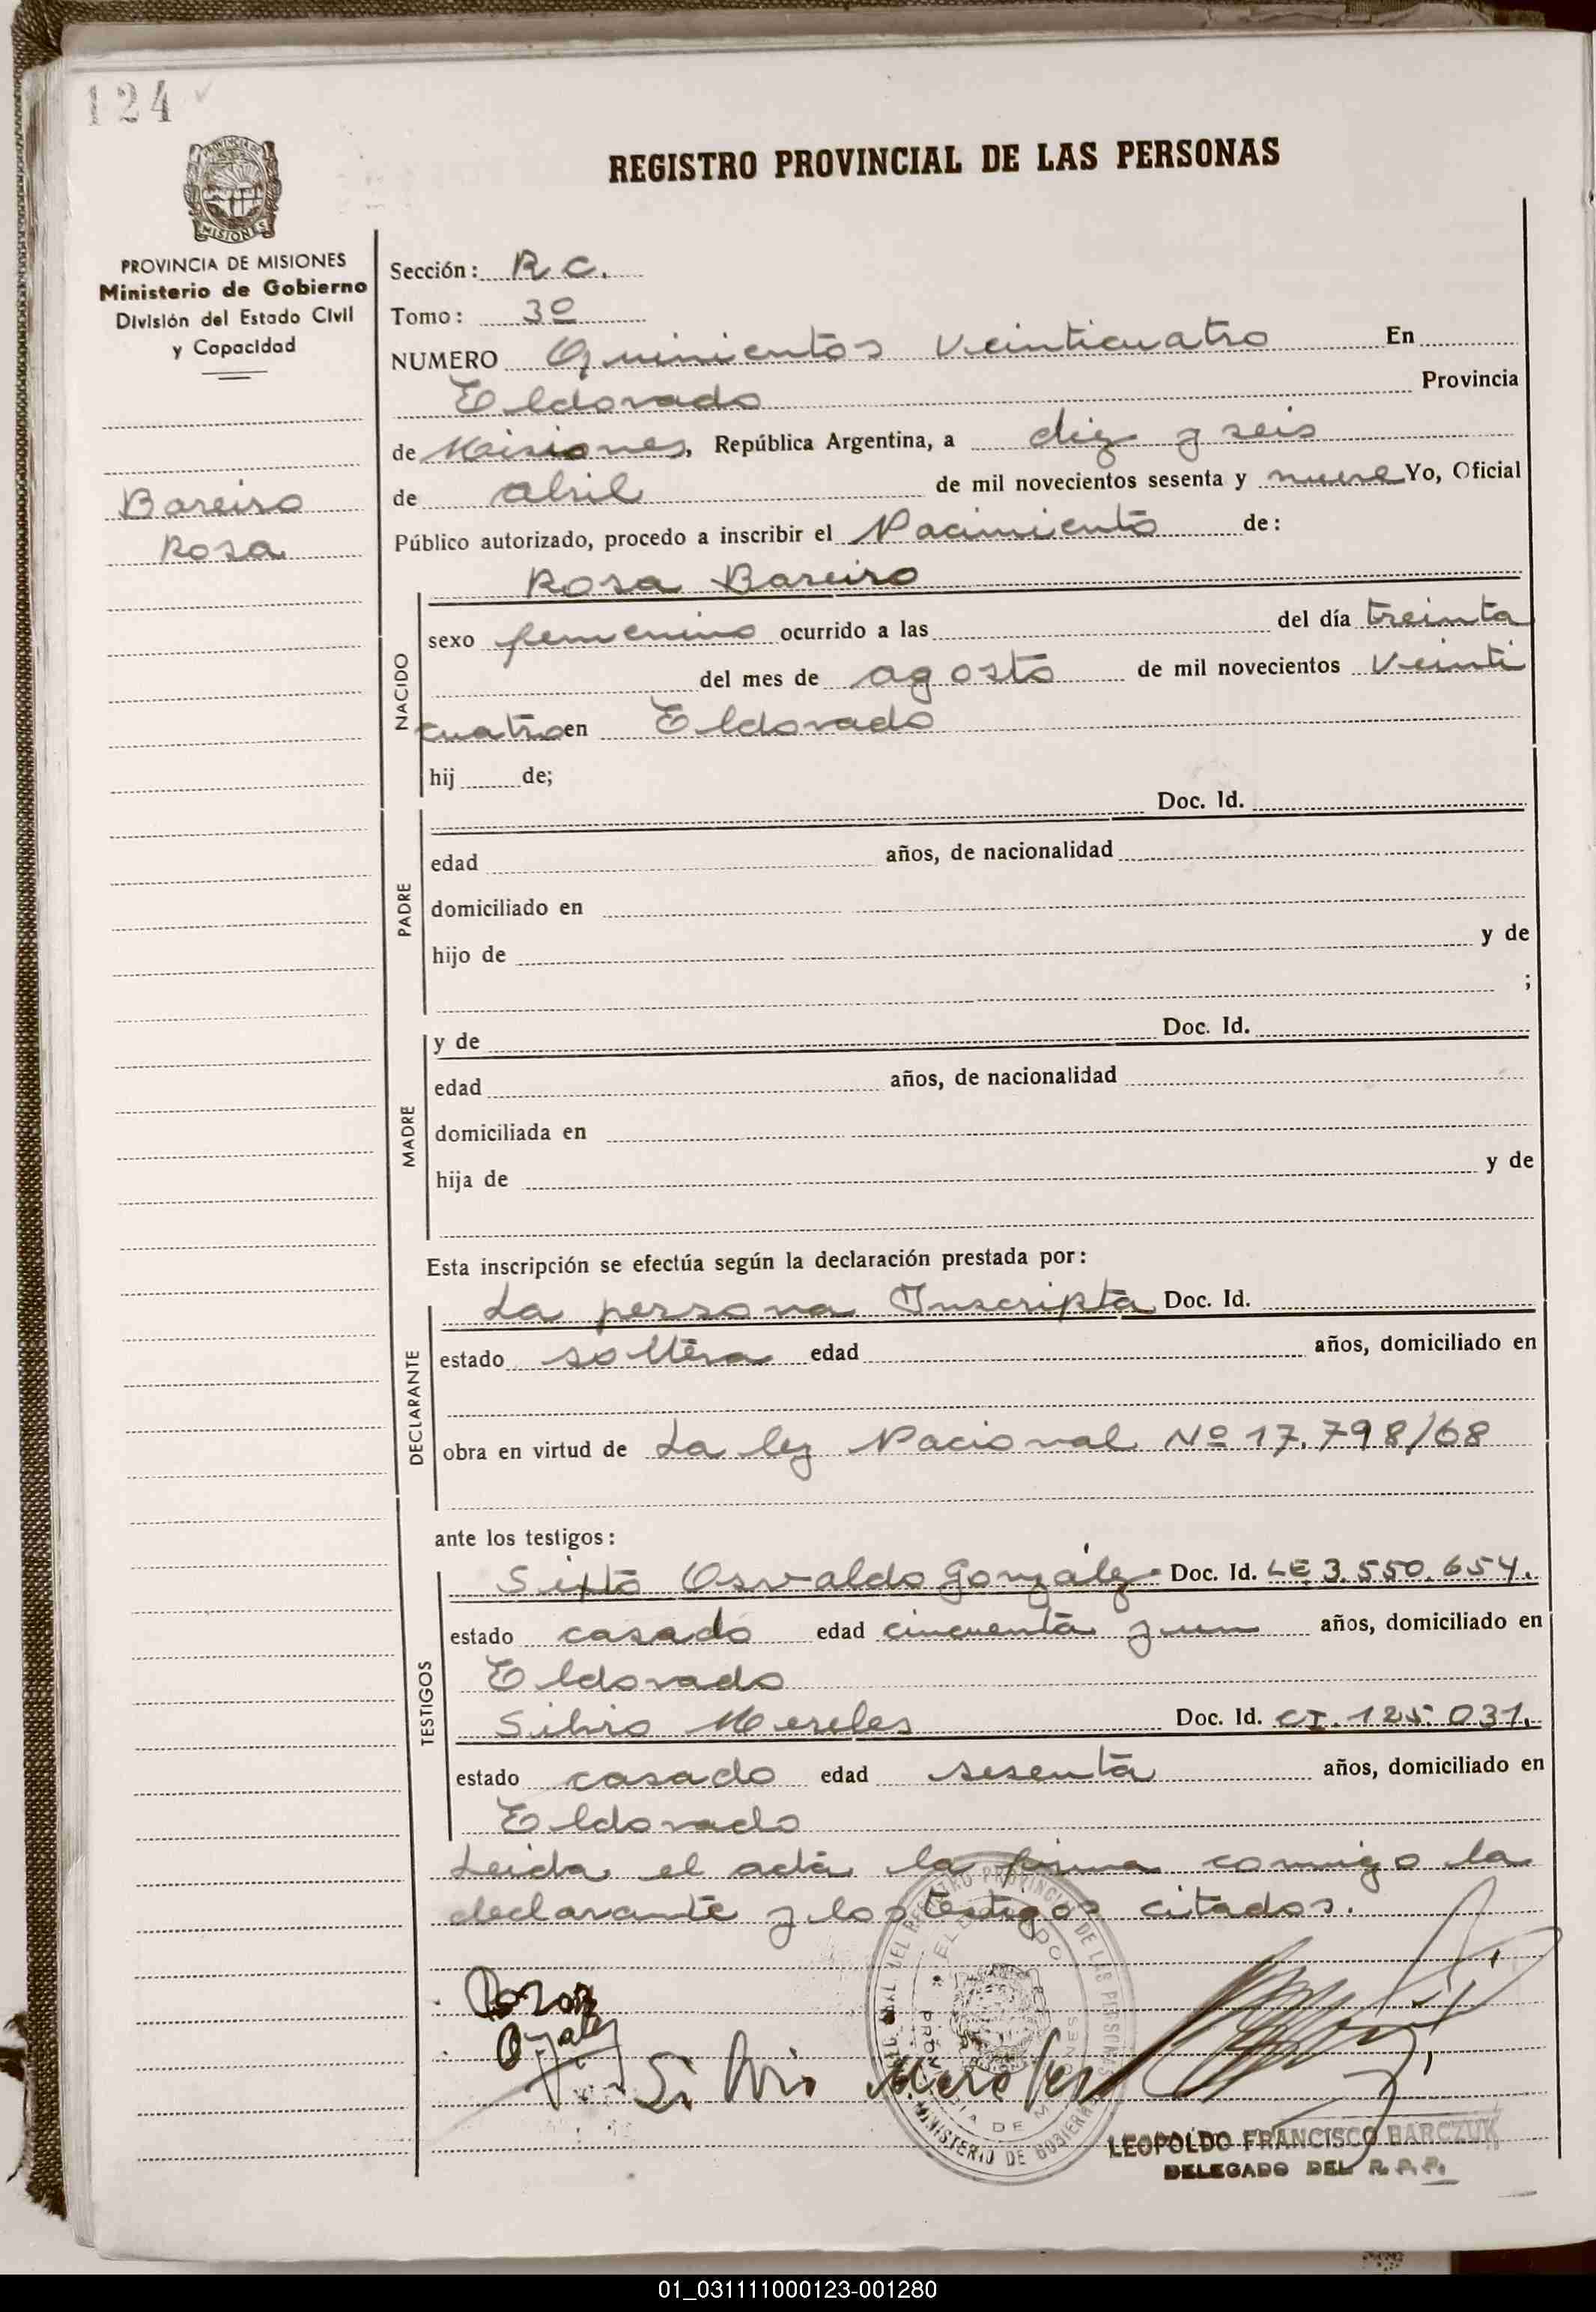 124
PROVINCIA DE MISIONES
MISIONES
PROVINCIA DE MISIONES
Ministerio de Gobierno
División del Estado Civil
y Capacidad
Bareiro
Rosa
REGISTRO PROVINCIAL DE LAS PERSONAS
Sección: R.C.
Tomo: 3º
NUMERO Quinientos veinticuatro En
Eldorado Provincia
de Misiones, República Argentina, a diez y seis
de abril de mil novecientos sesenta y nueve Yo, Oficial
Público autorizado, procedo a inscribir el Nacimiento de:
Rosa Bareiro
NACIDO
sexo femenino ocurrido a las del día treinta
del mes de agosto de mil novecientos veinti
cuatro en Eldorado
hij de;
PADRE
Doc. Id.
edad años, de nacionalidad
domiciliado en
hijo de y de
;
MADRE
y de Doc. Id.
edad años, de nacionalidad
domiciliada en
hija de y de
Esta inscripción se efectúa según la declaración prestada por:
DECLARANTE
La persona Inscripta Doc. Id.
estado soltera edad años, domiciliado en
obra en virtud de La ley Nacional Nº 17.798/68
ante los testigos:
TESTIGOS
Sixto Osvaldo González Doc. Id. LE 3.550.654.
estado casado edad cincuenta y un años, domiciliado en
Eldorado
Silvio Mereles Doc. Id. CI. 125.031.
estado casado edad sesenta años, domiciliado en
Eldorado
Leida el acta la firma conmigo la
declarante y los testigos citados.
Rosa
Silvio Mereles
DEL REGISTRO PROVINCIAL DE LAS PERSONAS
ELDORADO
PROVINCIA DE MISIONES
MINISTERIO DE GOBIERNO
LEOPOLDO FRANCISCO BARCZUK
DELEGADO DEL R.P.P.
01_031111000123-001280